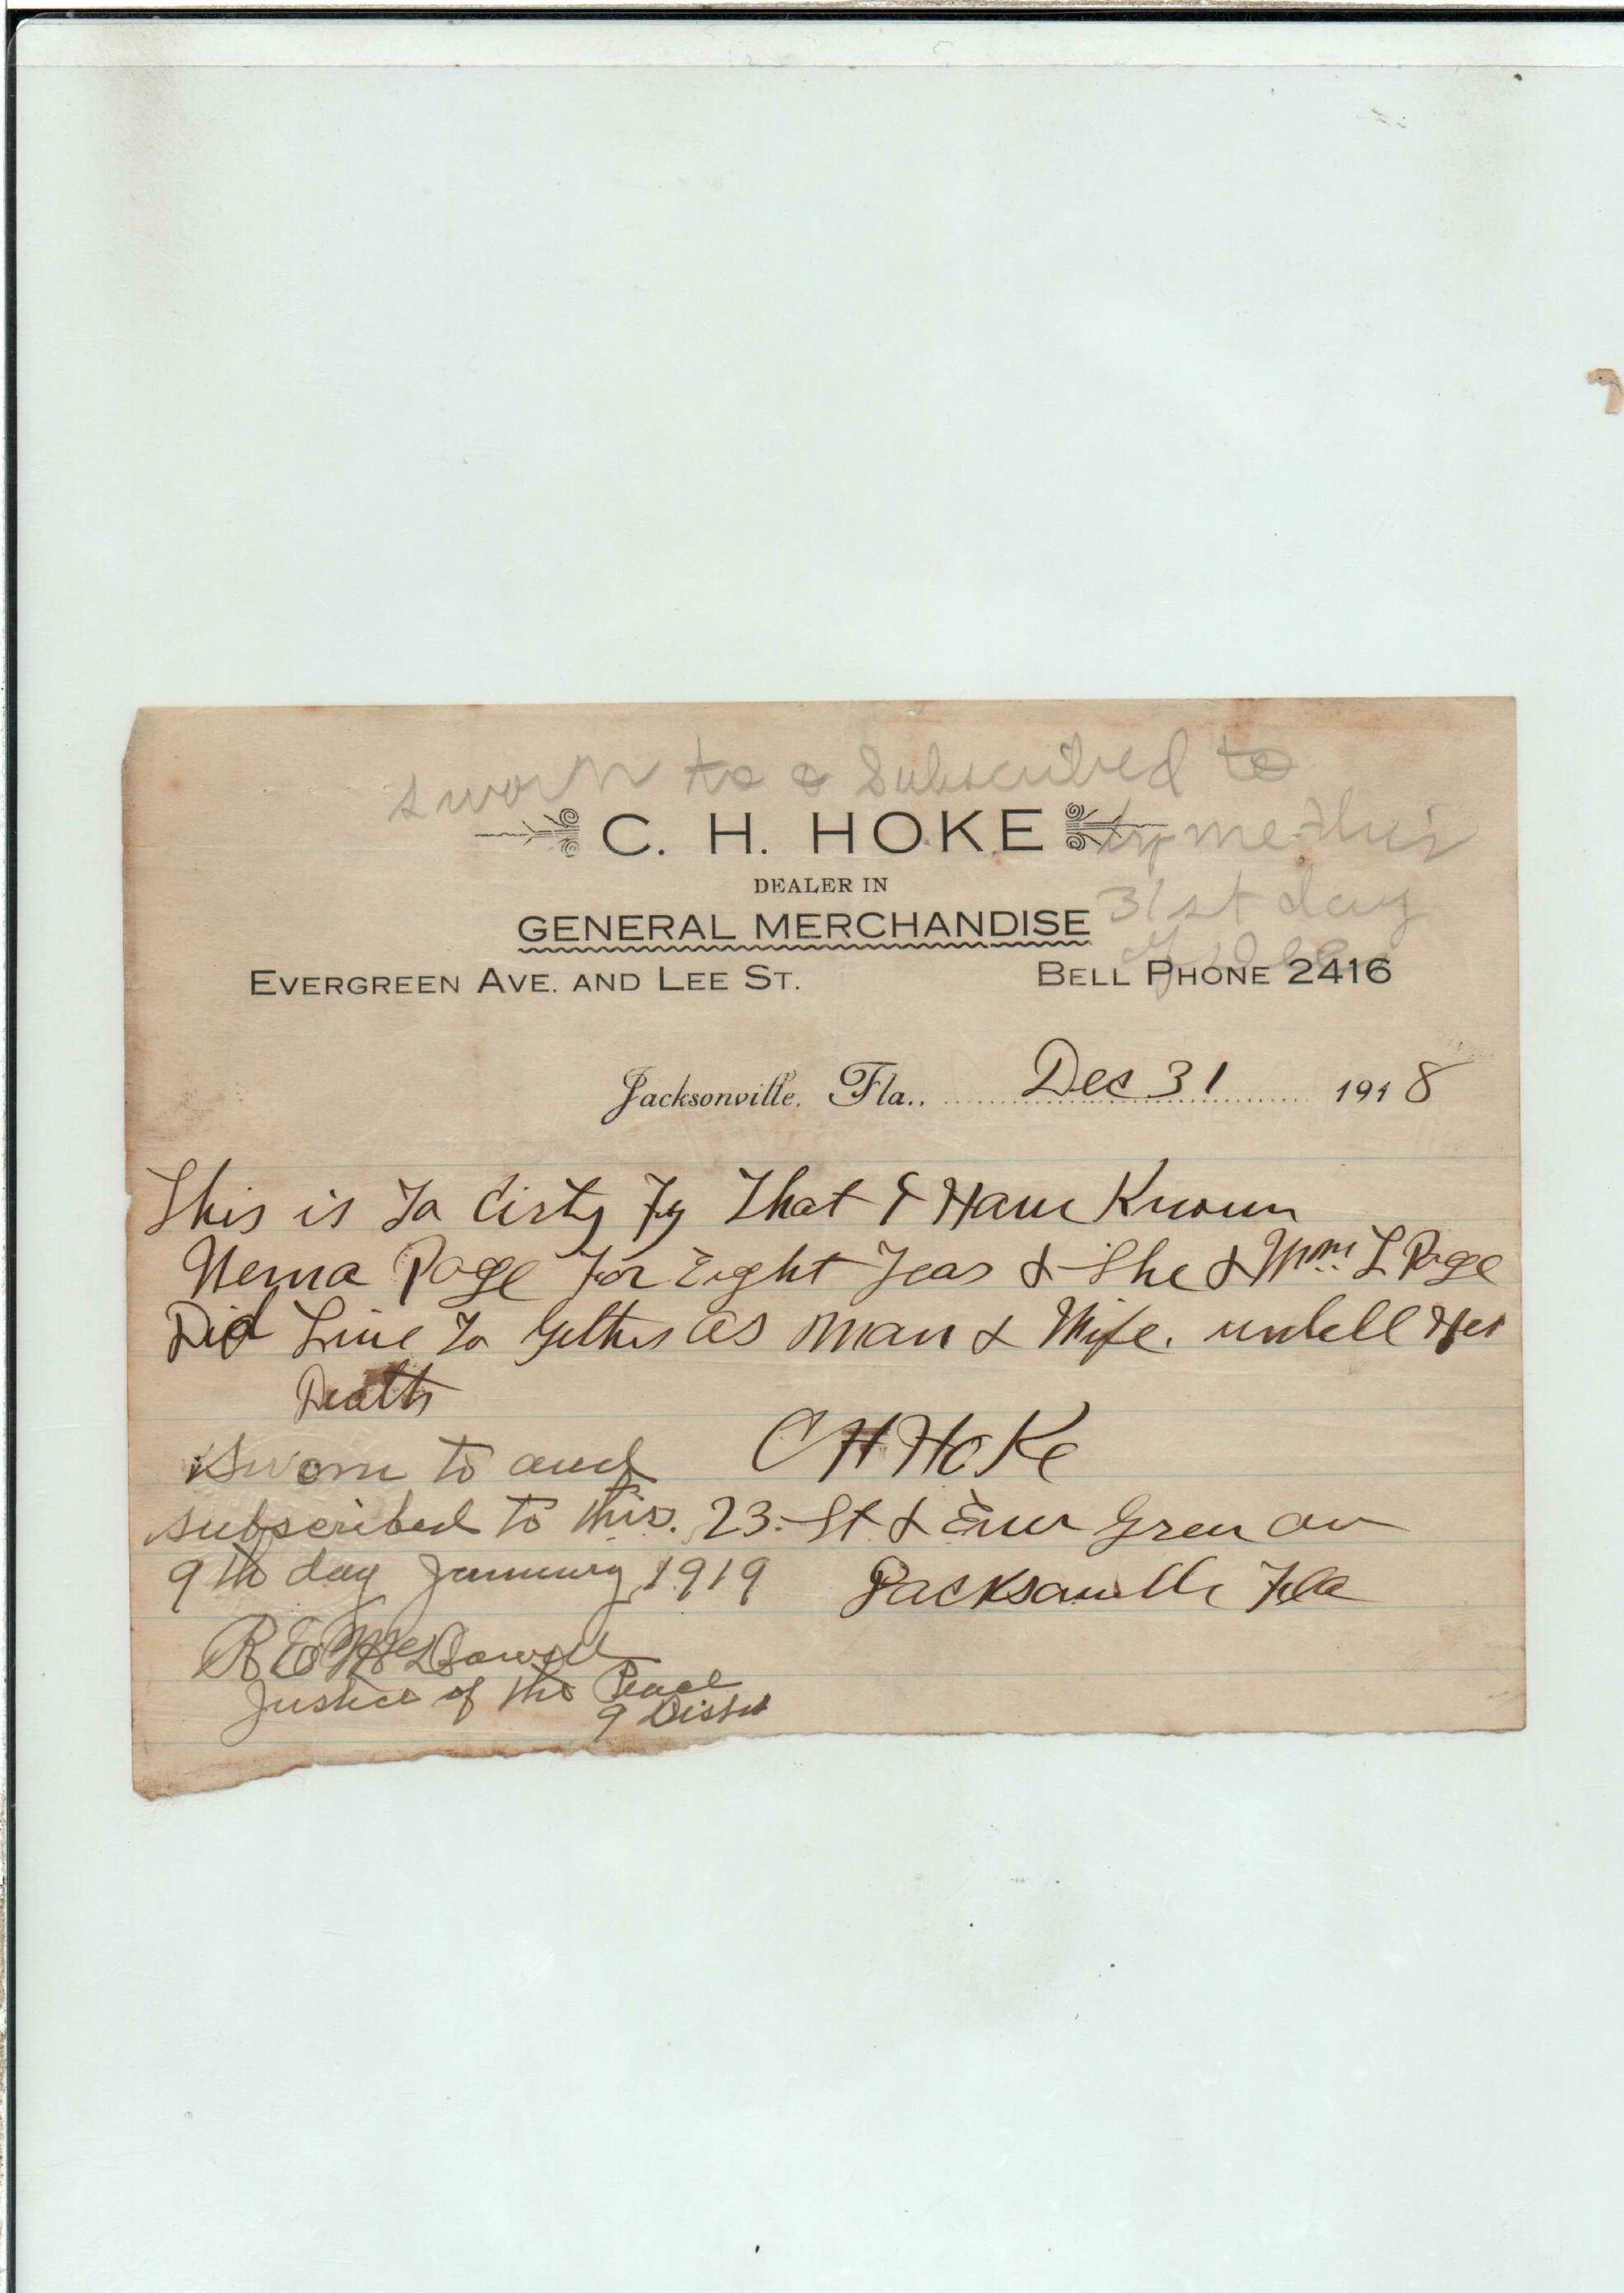 sworn to & Subscribed to
by me this
31st day
of Dec
C. H. HOKE
DEALER IN
GENERAL MERCHANDISE
EVERGREEN AVE. AND LEE ST. BELL PHONE 2416
Jacksonville, Fla., Dec 31 1918
This is To Cirty Fy That I Have Known
Nema Page For Eight Jeas & She & Wm. L Page
Did Live To Gether as Man & Wife. untell Her
Death
Sworn to and C H Hoke
subscribed to this. 23. St & Ever Green av
9th day January 1919 Jacksonville Fla
R E McDowell
Justice of the Peace
9 Dist